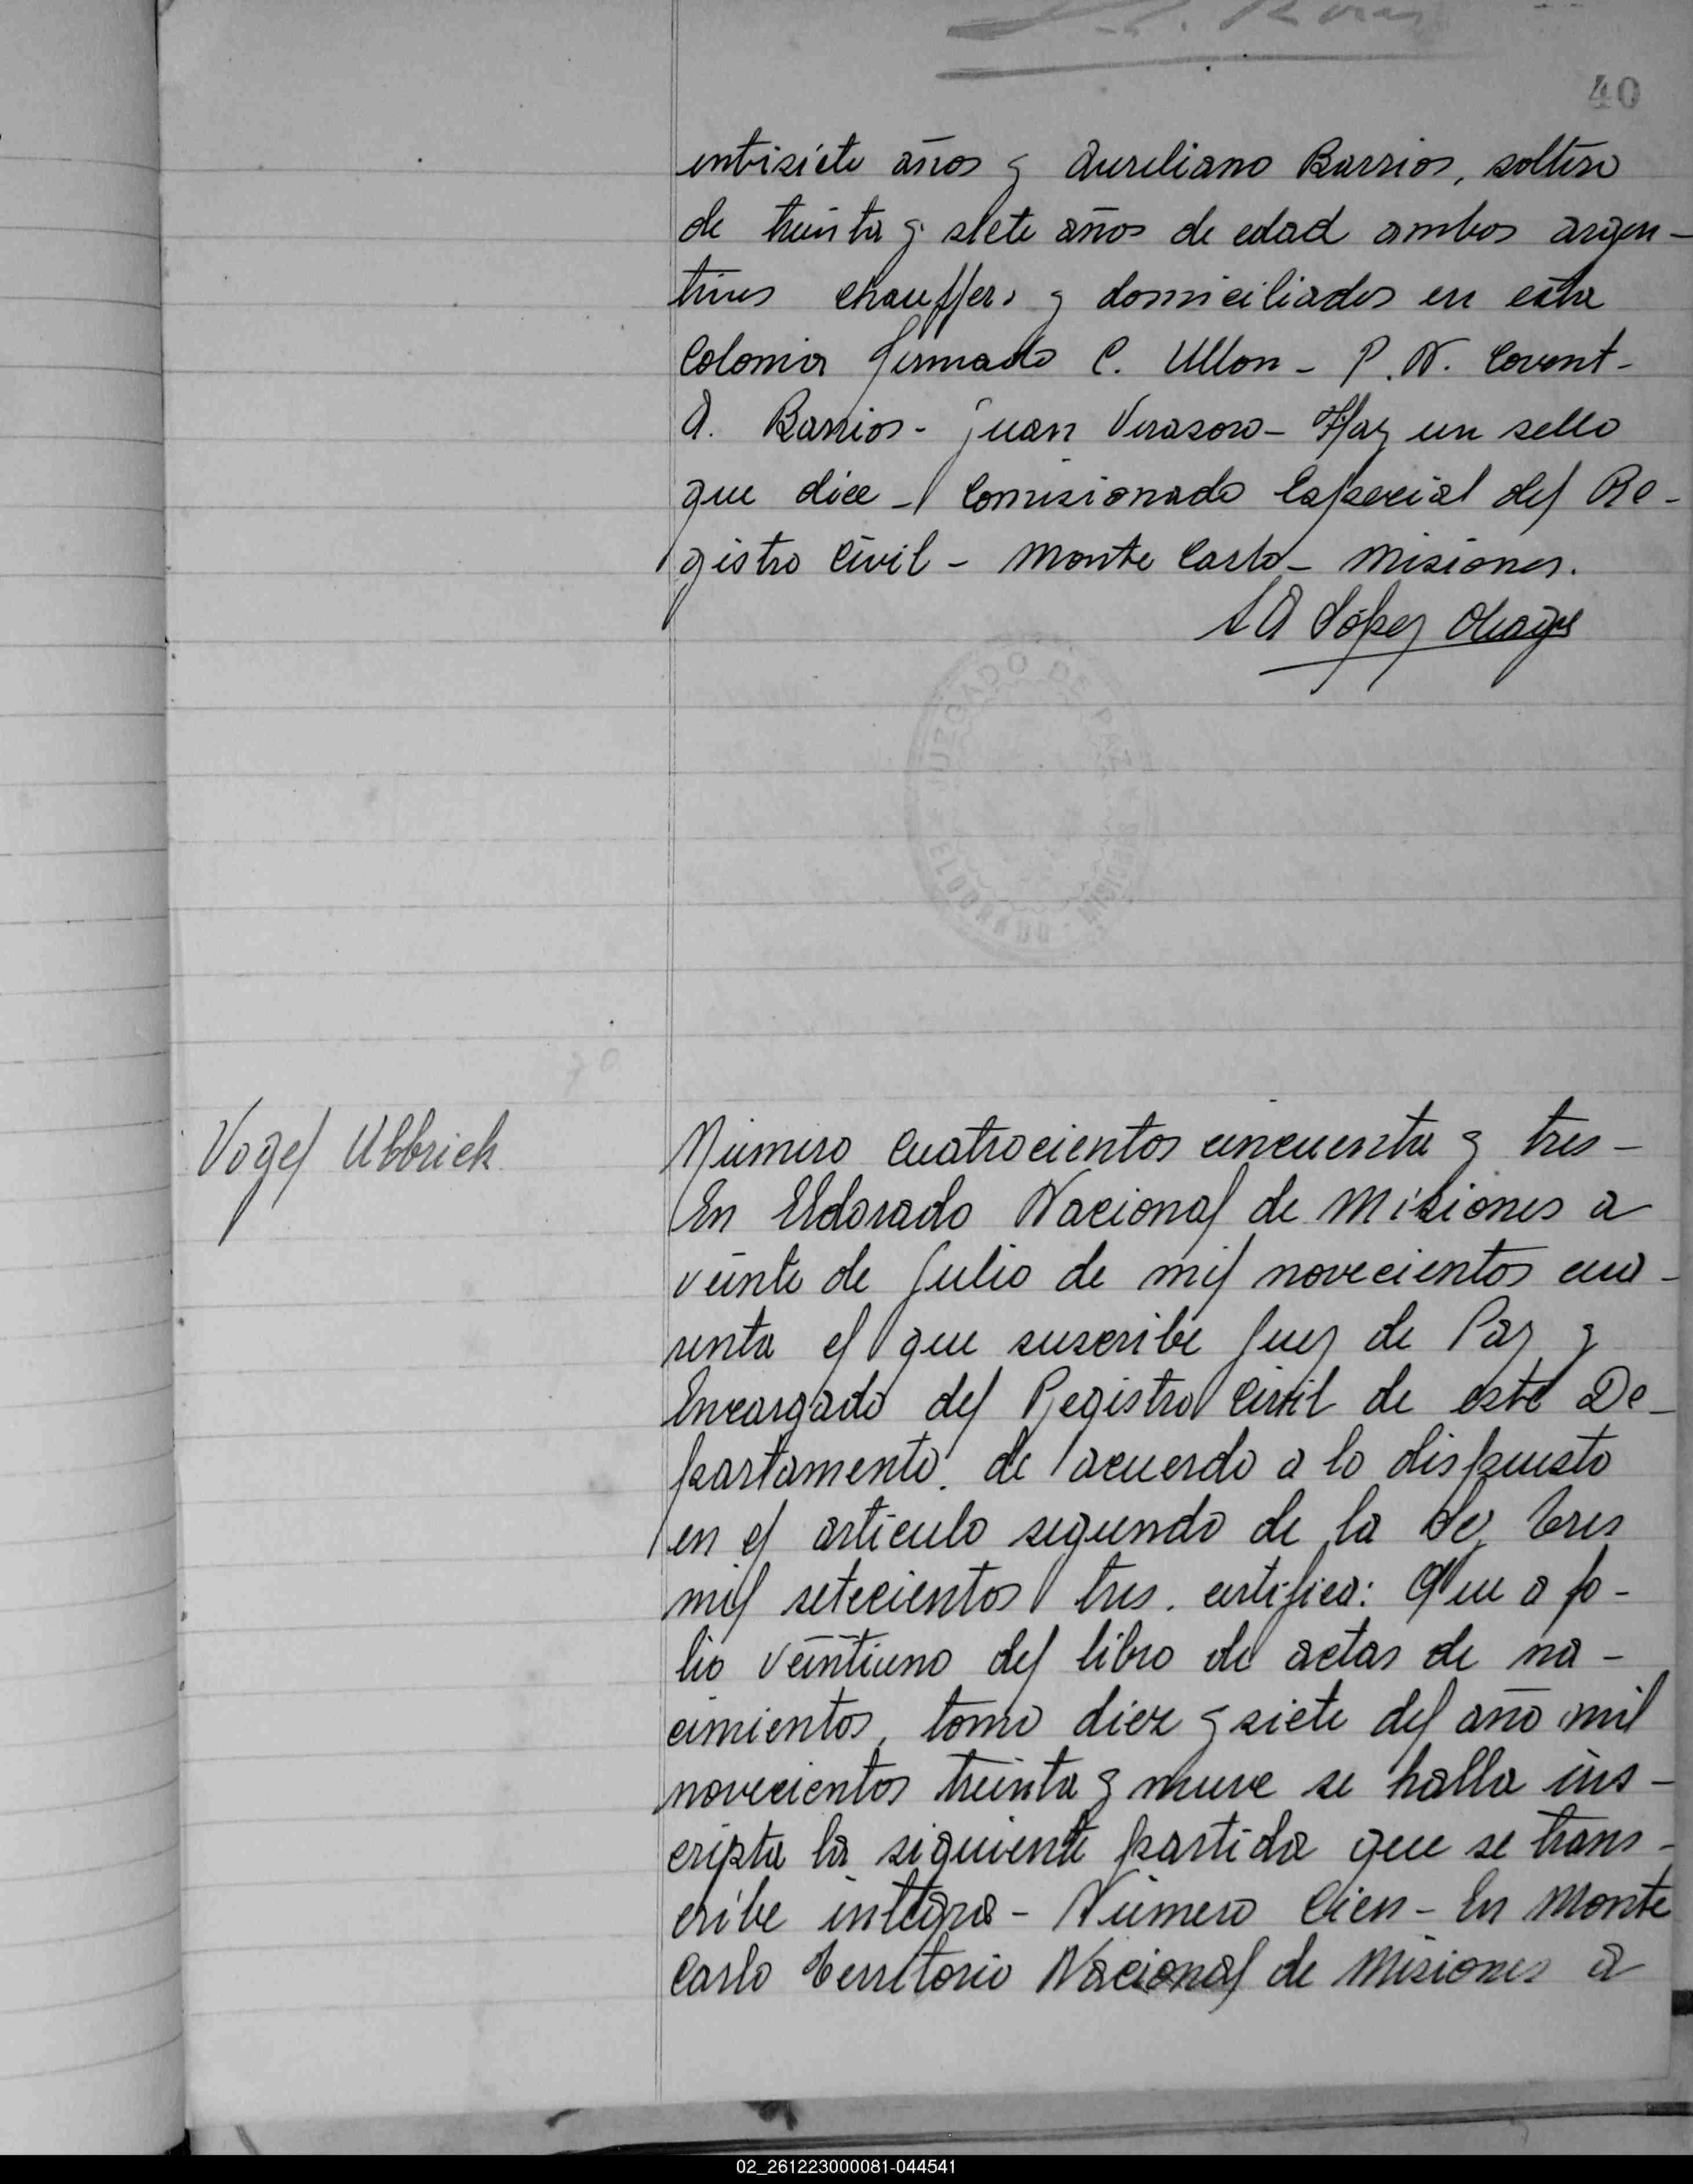 40
entisiete años y Aureliano Barrios, soltero
de treinta y siete años de edad ambos argen-
tinos chauffers y domiciliados en esta
Colonia firmado C. Ullon - P. N. Covent-
A. Barrios - Juan Verasoro - Hay un sello
que dice - Comisionado Especial del Re-
gistro Civil - Monte Carlo - Misiones.
López
JUZGADO DE PAZ
ELDORADO - MISIONES
Vogel Ulbrick
Número cuatrocientos cincuenta y tres -
En Eldorado Nacional de Misiones a
veinte de Julio de mil novecientos cua-
renta el que suscribe Juez de Paz y
Encargado del Registro Civil de este De-
partamento. de acuerdo a lo dispuesto
en el artículo segundo de la ley tres
mil setecientos tres. certifica: Que a fo-
lio veintiuno del libro de actas de na-
cimientos, tomo diez y siete del año mil
novecientos treinta y nueve se halla ins-
cripta la siguiente partida que se trans-
cribe integra - Número Cien - En Monte
Carlo Territorio Nacional de Misiones a
02_261223000081-044541